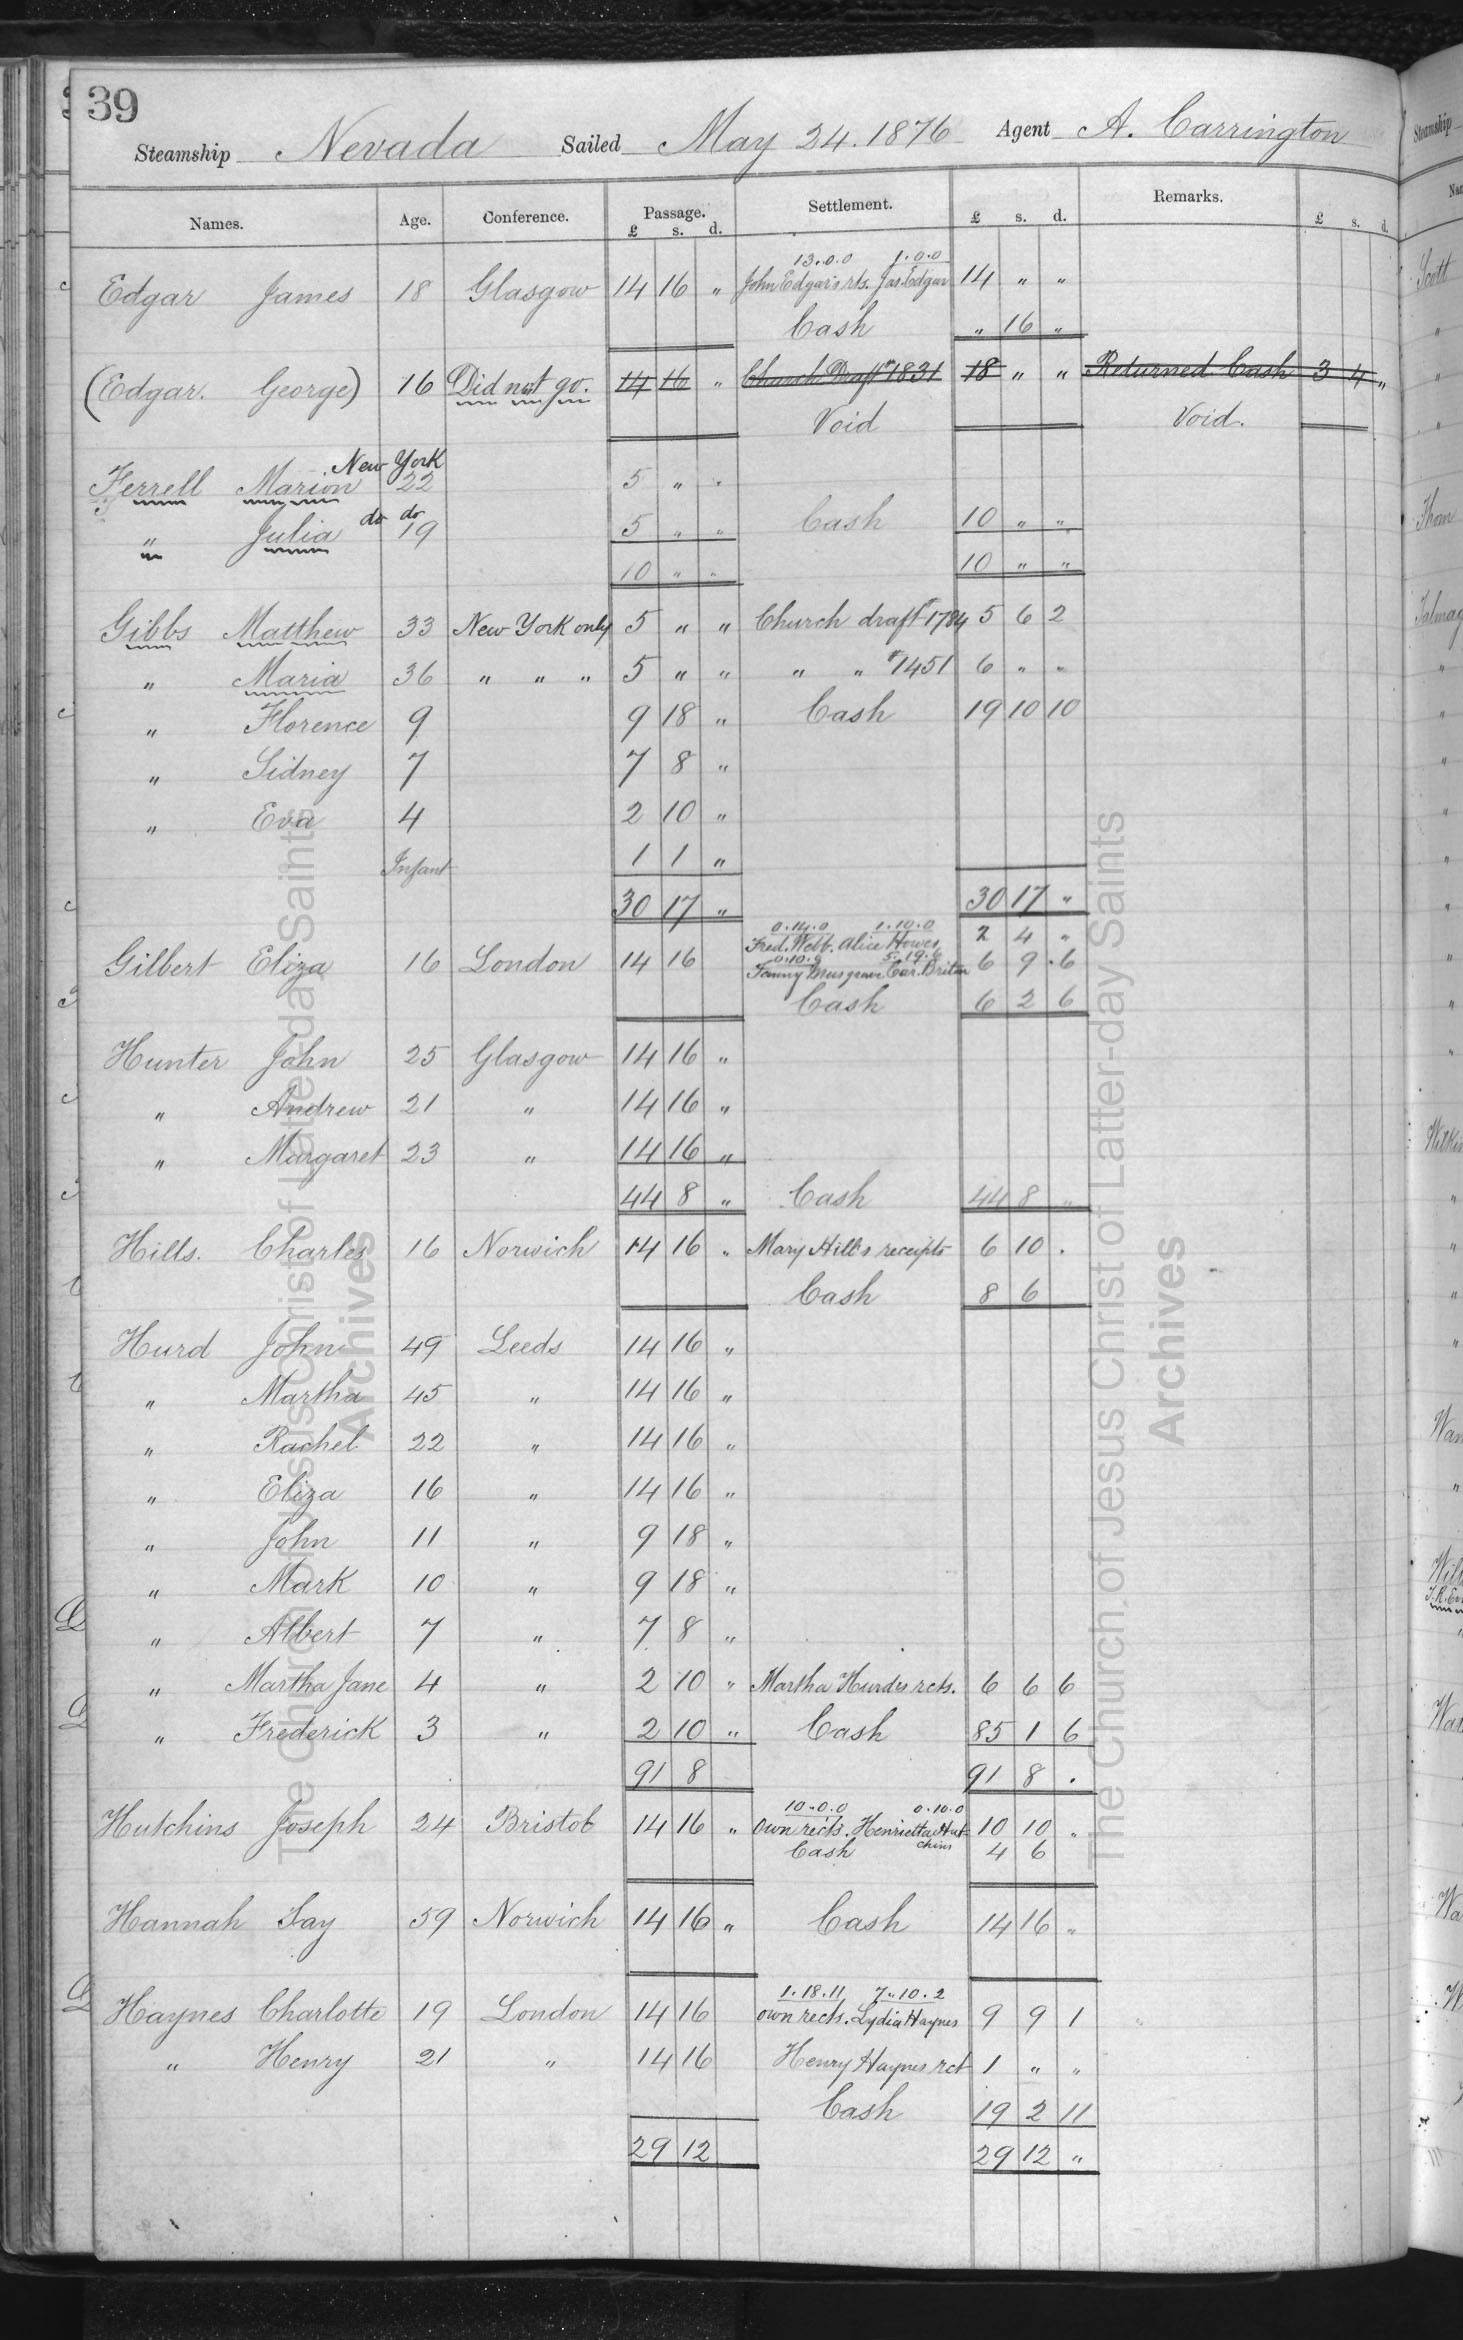 39
Steamship Nevada Sailed May 24. 1876 Agent A. Carrington
Names. Age. Conference. Passage. £ s. d. Settlement. £ s. d. Remarks. £ s. d.
13.0.0 1.0.0
Edgar James 18 Glasgow 14 16 " John Edgar's rts. Jas. Edgar 14 " "
Cash " 16 "
(Edgar. George) 16 Did not go. 14 16 " Church Draft # 1831 18 " " Returned Cash 3 4 "
Void Void.
New York
Ferrell Marion 22 5 " "
do do
" Julia 19 5 " " Cash 10 " "
10 " " 10 " "
Gibbs Matthew 33 New York only 5 " " Church draft # 1784 5 6 2
" Maria 36 " " " 5 " " " " # 1451 6 " "
" Florence 9 9 18 " Cash 19 10 10
" Sidney 7 7 8 "
" Eva 4 2 10 "
Infant 1 1 "
30 17 " 30 17 "
0.14.0 1.10.0
Fred. Webb. Alice Howes 2 4 "
Gilbert Eliza 16 London 14 16 0.10.0 5.19.6
Fanny Musgrave Car. Briton 6 9 6
Cash 6 2 6
Hunter John 25 Glasgow 14 16 "
" Andrew 21 " 14 16 "
" Margaret 23 " 14 16 "
44 8 " Cash 44 8 "
Hills. Charles 16 Norwich 14 16 " Mary Hill's receipts 6 10 .
Cash 8 6
Hurd John 49 Leeds 14 16 "
" Martha 45 " 14 16 "
" Rachel 22 " 14 16 "
" Eliza 16 " 14 16 "
" John 11 " 9 18 "
" Mark 10 " 9 18 "
" Albert 7 " 7 8 "
" Martha Jane 4 " 2 10 " Martha Hurd's rcts. 6 6 6
" Frederick 3 " 2 10 " Cash 85 1 6
91 8 91 8 .
10.0.0 0.10.0
Hutchins Joseph 24 Bristol 14 16 " Own rects. Henrietta Hutchins 10 10 "
Cash 4 6
Hannah Fay 59 Norwich 14 16 " Cash 14 16 "
1.18.11 7.10.2
Haynes Charlotte 19 London 14 16 own rects. Lydia Haynes 9 9 1
" Henry 21 " 14 16 Henry Haynes rct 1 " "
Cash 19 2 11
29 12 29 12 "
The Church of Jesus Christ of Latter-day Saints
Archives
The Church of Jesus Christ of Latter-day Saints
Archives
Steamship
Scott
Thom
Talmag